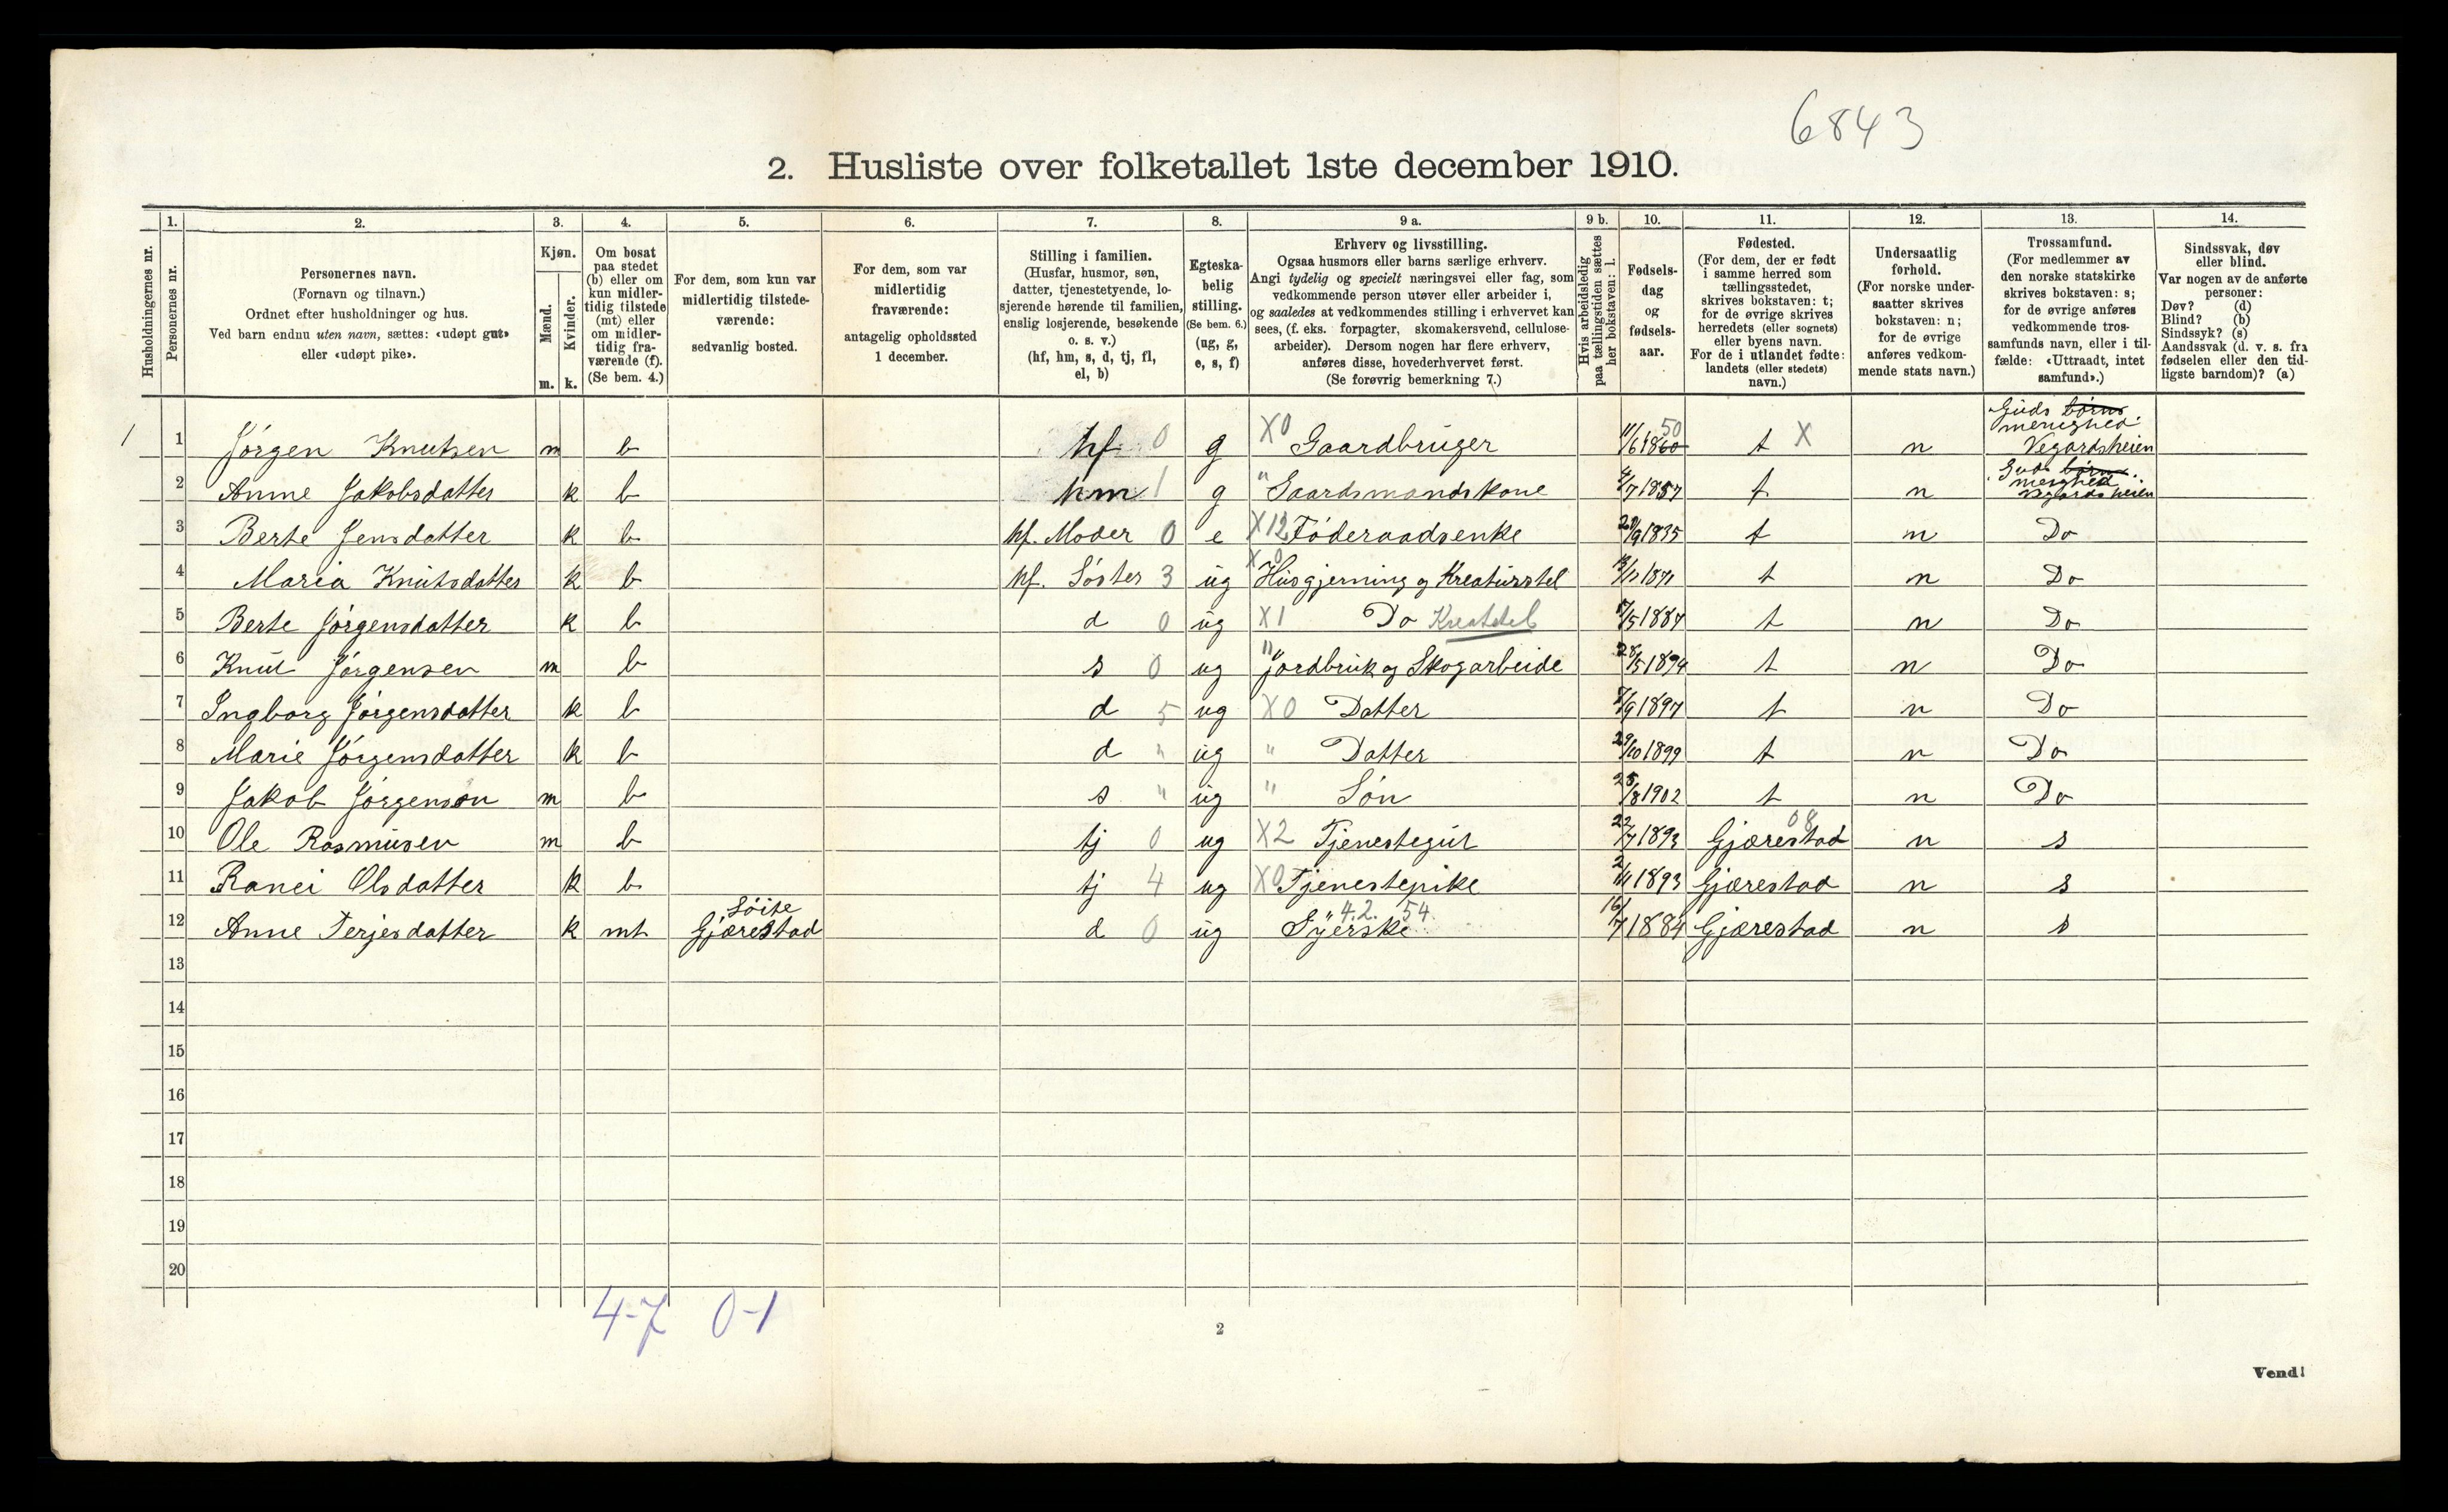 6843
2. Husliste over folketallet 1ste december 1910.
Husholdningernes nr.
1.
Personernes nr.
2.
Personernes navn.
(Fornavn og tilnavn.)
Ordnet efter husholdninger og hus.
Ved barn endnu uten navn, sættes: «udøpt gut»
eller «udøpt pike».
3.
Kjøn.
Mænd.
Kvinder.
m. k.
4.
Om bosat
paa stedet
(b) eller om
kun midler-
tidig tilstede
(mt) eller
om midler-
tidig fra-
værende (f).
(Se bem. 4.)
5.
For dem, som kun var
midlertidig tilstede-
værende:
sedvanlig bosted.
6.
For dem, som var
midlertidig
fraværende:
antagelig opholdssted
1 december.
7.
Stilling i familien.
(Husfar, husmor, søn,
datter, tjenestetyende, lo-
sjerende hørende til familien,
enslig losjerende, besøkende
o. s. v.)
(hf, hm, s, d, tj, fl,
el, b)
8.
Egteska-
belig
stilling.
(Se bem. 6.)
(ug, g,
e, s, f)
9 a.
Erhverv og livsstilling.
Ogsaa husmors eller barns særlige erhverv.
Angi tydelig og specielt næringsvei eller fag, som
vedkommende person utøver eller arbeider i,
og saaledes at vedkommendes stilling i erhvervet kan
sees, (f. eks. forpagter, skomakersvend, cellulose-
arbeider). Dersom nogen har flere erhverv,
anføres disse, hovederhvervet først.
(Se forøvrig bemerkning 7.)
9 b.
Hvis arbeidsledig
paa tællingstiden sættes
her bokstaven: l.
10.
Fødsels-
dag
og
fødsels-
aar.
11.
Fødested.
(For dem, der er født
i samme herred som
tællingsstedet,
skrives bokstaven: t;
for de øvrige skrives
herredets (eller sognets)
eller byens navn.
For de i utlandet fødte:
landets (eller stedets)
navn.)
12.
Undersaatlig
forhold.
(For norske under-
saatter skrives
bokstaven: n;
for de øvrige
anføres vedkom-
mende stats navn.)
13.
Trossamfund.
(For medlemmer av
den norske statskirke
skrives bokstaven: s;
for de øvrige anføres
vedkommende tros-
samfunds navn, eller i til-
fælde: «Uttraadt, intet
samfund».)
14.
Sindssvak, døv
eller blind.
Var nogen av de anførte
personer:
Døv? (d)
Blind? (b)
Sindssyk? (s)
Aandssvak (d. v. s. fra
fødselen eller den tid-
ligste barndom)? (a)
1 1 Jørgen Knutsen m b hf 0 g X0 Gaardbruger 11/6 1860 50 t X n Guds børns menighed Vegardsheien
2 Anne Jakobsdatter k b hm 1 g " Gaardsmandskone 4/7 1857 t n Guds børns menighed Vegardsheien
3 Berte Jensdatter k b hf. Moder 0 e X12 Føderaadsenke 29/9 1835 t n Do
4 Maria Knutsdatter k b hf. Søster 3 ug X0 Husgjerning og Kreaturstel 1871 t n Do
5 Berte Jørgensdatter k b d 0 ug X1 Do Kreatstel 1887 t n Do
6 Knut Jørgensen m b s 0 ug " jordbruk og Skogarbeide 28/5 1894 t n Do
7 Ingborg Jørgensdatter k b d 5 ug X0 Datter 1897 t n Do
8 Marie Jørgensdatter k b d " ug " Datter 29/10 1899 t n Do
9 Jakob Jørgensøn m b s " ug " Søn 25/8 1902 t n Do
10 Ole Rasmusen m b tj 0 ug X2 Tjenestegut 22/7 1893 Gjærestad 08 n s
11 Ranei Olsdatter k b tj 4 ug X0 Tjenestepike 2/11 1893 Gjærestad n s
12 Anne Terjesdatter k mt Søite Gjærestad d 0 ug " 4.2. 54. Syerske 16/7 1884 Gjærestad n s
13
14
15
16
17
18
19
20
4-7 0-1
2
Vend!